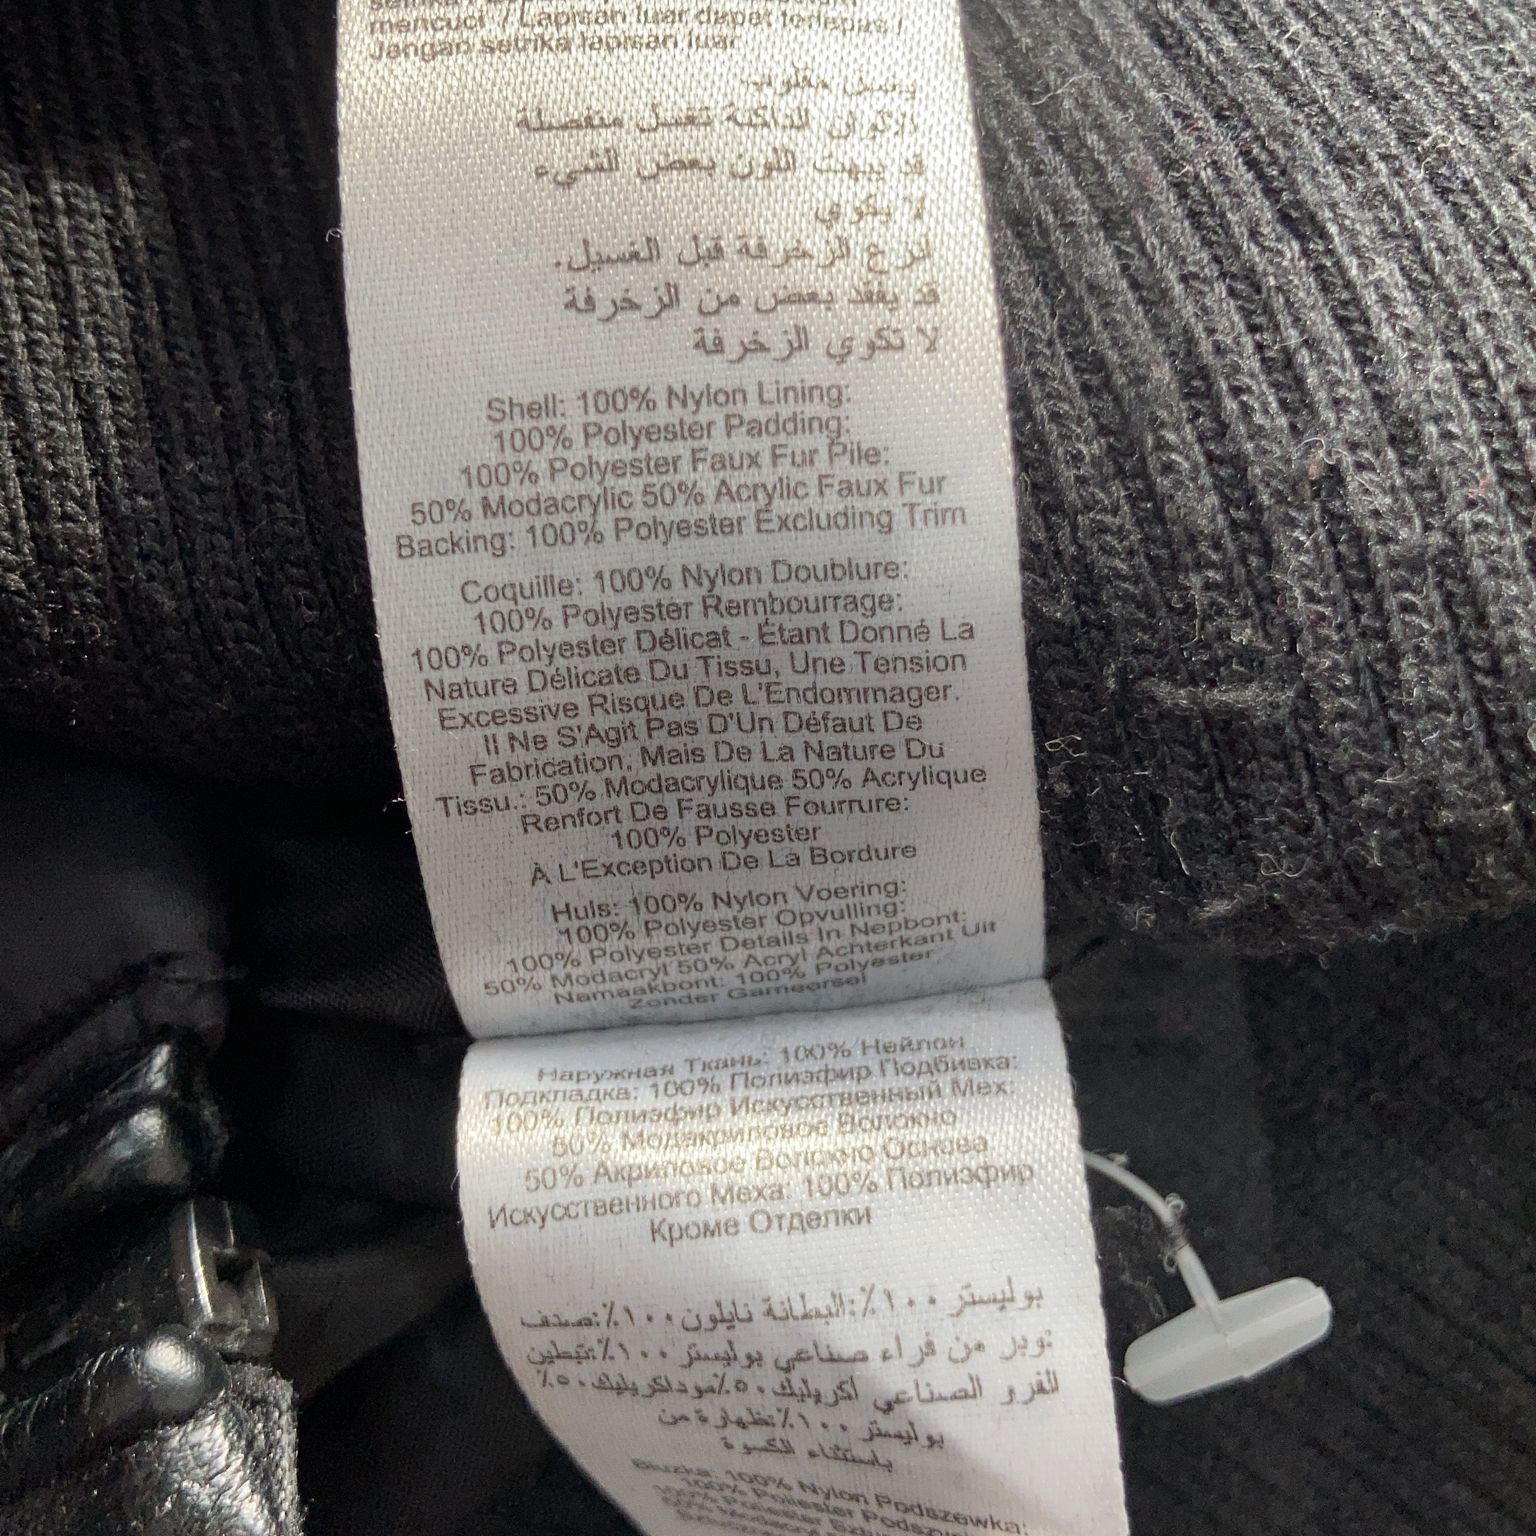 mencuci / Lapisan luar dapat terlepas /
Jangan setrika lapisan luar
يغسل مقلوب
الألوان الداكنة تغسل منفصلة
قد يبهت اللون بعض الشيء
لا يكوي
انزع الزخرفة قبل الغسيل.
قد يفقد بعض من الزخرفة
لا تكوي الزخرفة
Shell: 100% Nylon Lining:
100% Polyester Padding:
100% Polyester Faux Fur Pile:
50% Modacrylic 50% Acrylic Faux Fur
Backing: 100% Polyester Excluding Trim
Coquille: 100% Nylon Doublure:
100% Polyester Rembourrage:
100% Polyester Délicat - Étant Donné La
Nature Délicate Du Tissu, Une Tension
Excessive Risque De L'Endommager.
Il Ne S'Agit Pas D'Un Défaut De
Fabrication, Mais De La Nature Du
Tissu.: 50% Modacrylique 50% Acrylique
Renfort De Fausse Fourrure:
100% Polyester
À L'Exception De La Bordure
Huls: 100% Nylon Voering:
100% Polyester Opvulling:
100% Polyester Details In Nepbont:
50% Modacryl 50% Acryl Achterkant Uit
Namaakbont: 100% Polyester
Zonder Garneersel
Наружная Ткань: 100% Нейлон
Подкладка: 100% Полиэфир Подбивка:
100% Полиэфир Искусственный Мех:
50% Модакриловое Волокно
50% Акриловое Волокно Основа
Искусственного Меха: 100% Полиэфир
Кроме Отделки
بوليستر ١٠٠٪:البطانة نايلون ١٠٠٪:صدف
وبر من فراء صناعي بوليستر ١٠٠٪:تبطين
الفرو الصناعي اكريليك ٥٠٪موداكريليك ٥٠٪
بوليستر ١٠٠٪:ظهارة من
باستثناء الكسوة
Bluzka: 100% Nylon Podszewka:
100% Poliester